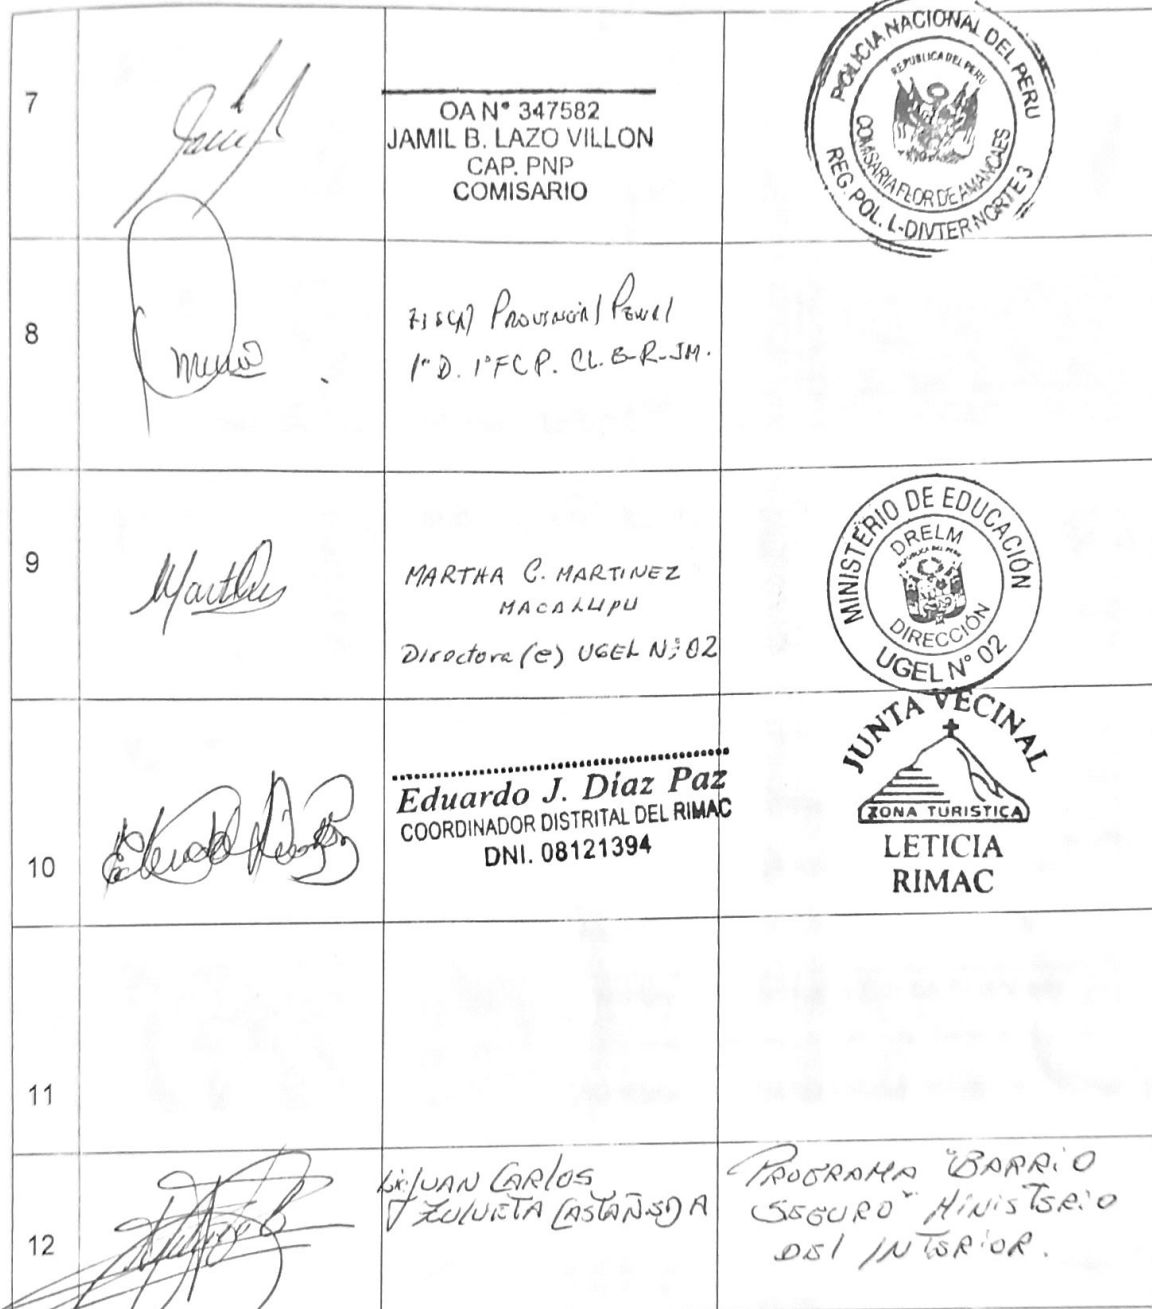 7
OA N° 347582
JAMIL B. LAZO VILLON
CAP. PNP
COMISARIO
POLICIA NACIONAL DEL PERU
REPUBLICA DEL PERU
COMISARIA FLOR DE AMANCAES
REG. POL. L-DIVTER NORTE 3
8
Fiscal Provincial Penal
1° D. 1° FCP. CL. B-R-JM.
9
MARTHA C. MARTINEZ
MACALUPU
Directora (e) UGEL N° 02
MINISTERIO DE EDUCACIÓN
DRELM
REPUBLICA DEL PERU
DIRECCIÓN
UGEL N° 02
10
Eduardo J. Díaz Paz
COORDINADOR DISTRITAL DEL RIMAC
DNI. 08121394
JUNTA VECINAL
ZONA TURISTICA
LETICIA
RIMAC
11
12
Lic. JUAN CARLOS
ZULUETA CASTAÑEDA
PROGRAMA "BARRIO
SEGURO" MINISTERIO
DEL INTERIOR.